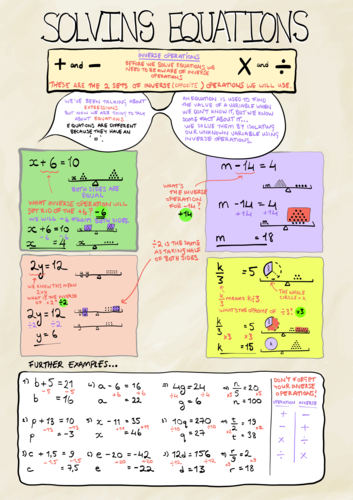 SOLVING EQUATIONS
INVERSE OPERATIONS
+ and -
BEFORE WE SOLVE EQUATIONS WE
NEED TO BE AWARE OF INVERSE
OPERATIONS
× and ÷
THESE ARE THE 2 SETS OF INVERSE (OPPOSITE) OPERATIONS WE WILL USE.
WE'VE BEEN TALKING ABOUT
EXPRESSIONS
BUT NOW WE ARE GOING TO TALK
ABOUT EQUATIONS.
EQUATIONS ARE DIFFERENT
BECAUSE THEY HAVE AN
'='.
AN EQUATION IS USED TO FIND
THE VALUE OF A VARIABLE WHEN
WE DON'T KNOW IT, BUT WE KNOW
SOME FACT ABOUT IT...
WE VALUE THEM BY ISOLATING
OUR UNKNOWN VARIABLE USING
INVERSE OPERATIONS.
x + 6 = 10
BOTH SIDES ARE
EQUAL
WHAT INVERSE OPERATION WILL
GET RID OF THE +6? -6
WE WILL -6 FROM BOTH SIDES
x + 6 = 10
-6 -6
x = 4
m - 14 = 4
WHAT'S THE
INVERSE
OPERATION
FOR -14?
+14
m - 14 = 4
+14 +14
m = 18
÷2 IS THE SAME
AS TAKING HALF
OF BOTH SIDES
2y = 12
WE KNOW THIS MEANS
2×y
WHAT IS THE INVERSE
OF ×2? ÷2
2y = 12
÷2 ÷2
y = 6
k/3 = 5
THE WHOLE
CIRCLE = k
k/3 MEANS k÷3
WHAT'S THE OPPOSITE OF ÷3? ×3
k/3 = 5
×3 ×3
k = 15
FURTHER EXAMPLES...
1) b + 5 = 21
-5 -5
b = 16
4) a - 6 = 16
+6 +6
a = 22
7) 4g = 24
÷4 ÷4
g = 6
10) n/5 = 20
×5 ×5
n = 100
2) p + 13 = 10
-13 -13
p = -3
5) x - 11 = 35
+11 +11
x = 46
8) 10q = 270
÷10 ÷10
q = 27
11) t/2 = 19
×2 ×2
t = 38
3) c + 1.5 = 9
-1.5 -1.5
c = 7.5
6) e - 20 = -42
+20 +20
e = -22
9) 12d = 156
÷12 ÷12
d = 13
12) r/9 = 2
×9 ×9
r = 18
DON'T FORGET
YOUR INVERSE
OPERATIONS!
OPERATION INVERSE
+ -
- +
× ÷
÷ ×